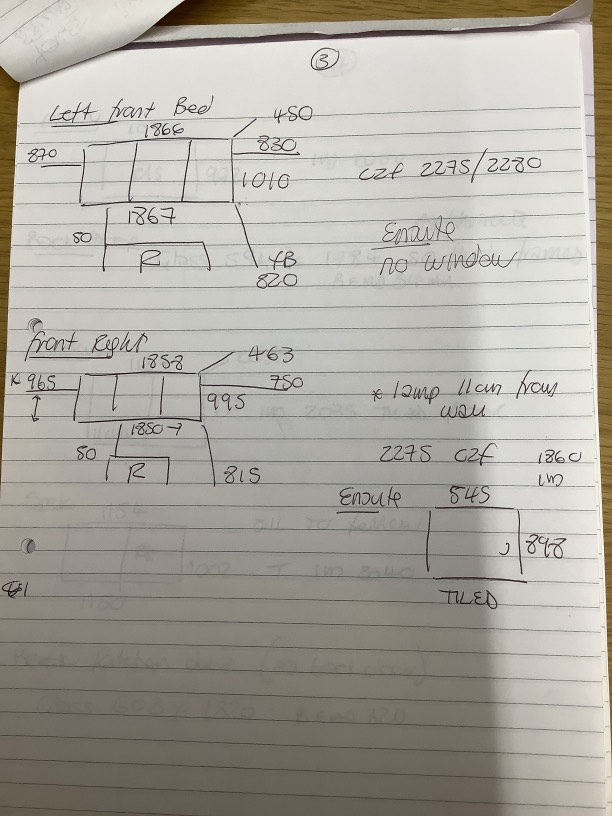 3
Left front Bed
1866
480
870
830
1010
C2F 2275/2280
1867
80
R
Ensuite
no window
820
front Right
1858
463
* 965
750
995
* lamp 11cm from
wall
1850 →
80
R
815
2275 C2F
1860
Ensuite
545
898
TILED